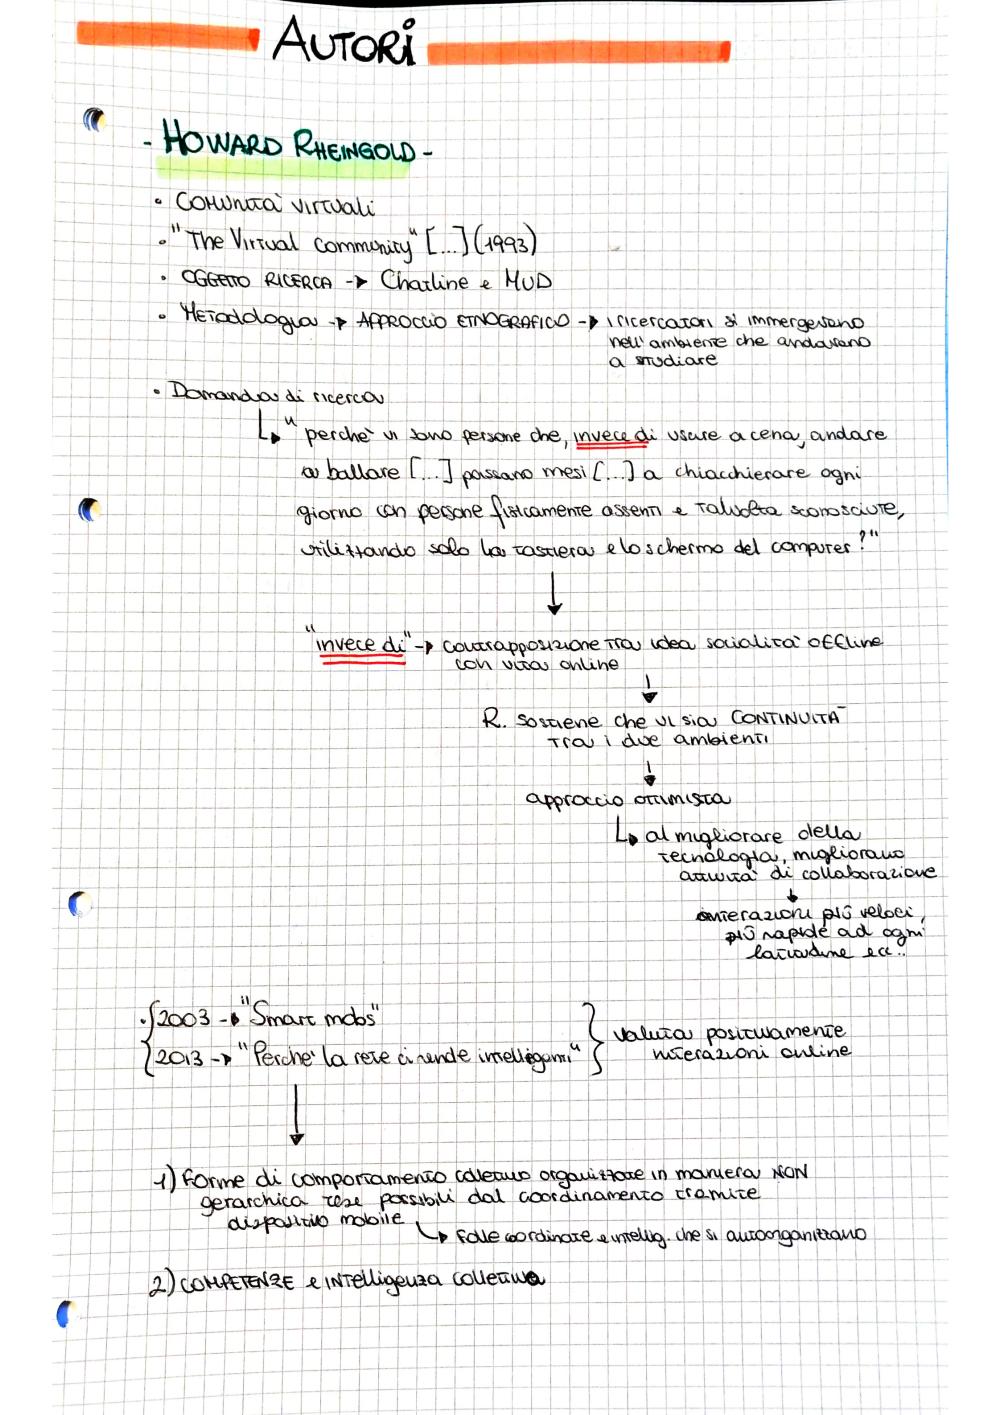 AUTORi
- HOWARD RHEINGOLD -
• COMUNITA' VIRTUALI
• "The Virtual Community" [...] (1993)
• OGGETTO RICERCA -> Chatline e MUD
• METODOLOGIA -> APPROCCIO ETNOGRAFICO -> i ricercatori si immergevano
nell'ambiente che andavano
a studiare
• Domanda di ricerca
↳ "perche' vi sono persone che, invece di uscire a cena, andare
a ballare [...] passano mesi [...] a chiacchierare ogni
giorno con persone fisicamente assenti e talvolta sconosciute,
utilizzando solo la tastiera e lo schermo del computer?"
↓
"invece di" -> contrapposizione tra idea socialita' offline
con vita online
↓
R. sostiene che vi sia CONTINUITA'
tra i due ambienti
↓
approccio ottimista
↳ al migliorare della
tecnologia, migliorano
attivita' di collaborazione
↓
interazioni più veloci,
più rapide ad ogni
latitudine ecc..
• { 2003 -> "Smart mobs"
2013 -> "Perche' la rete ci rende intelligenti" } valuta positivamente
interazioni online
↓
1) forme di comportamento collettivo organizzate in maniera NON
gerarchica rese possibili dal coordinamento tramite
dispositivo mobile
↳ folle coordinate e intellig. che si autoorganizzano
2) COMPETENZE e INTelligenza collettiva